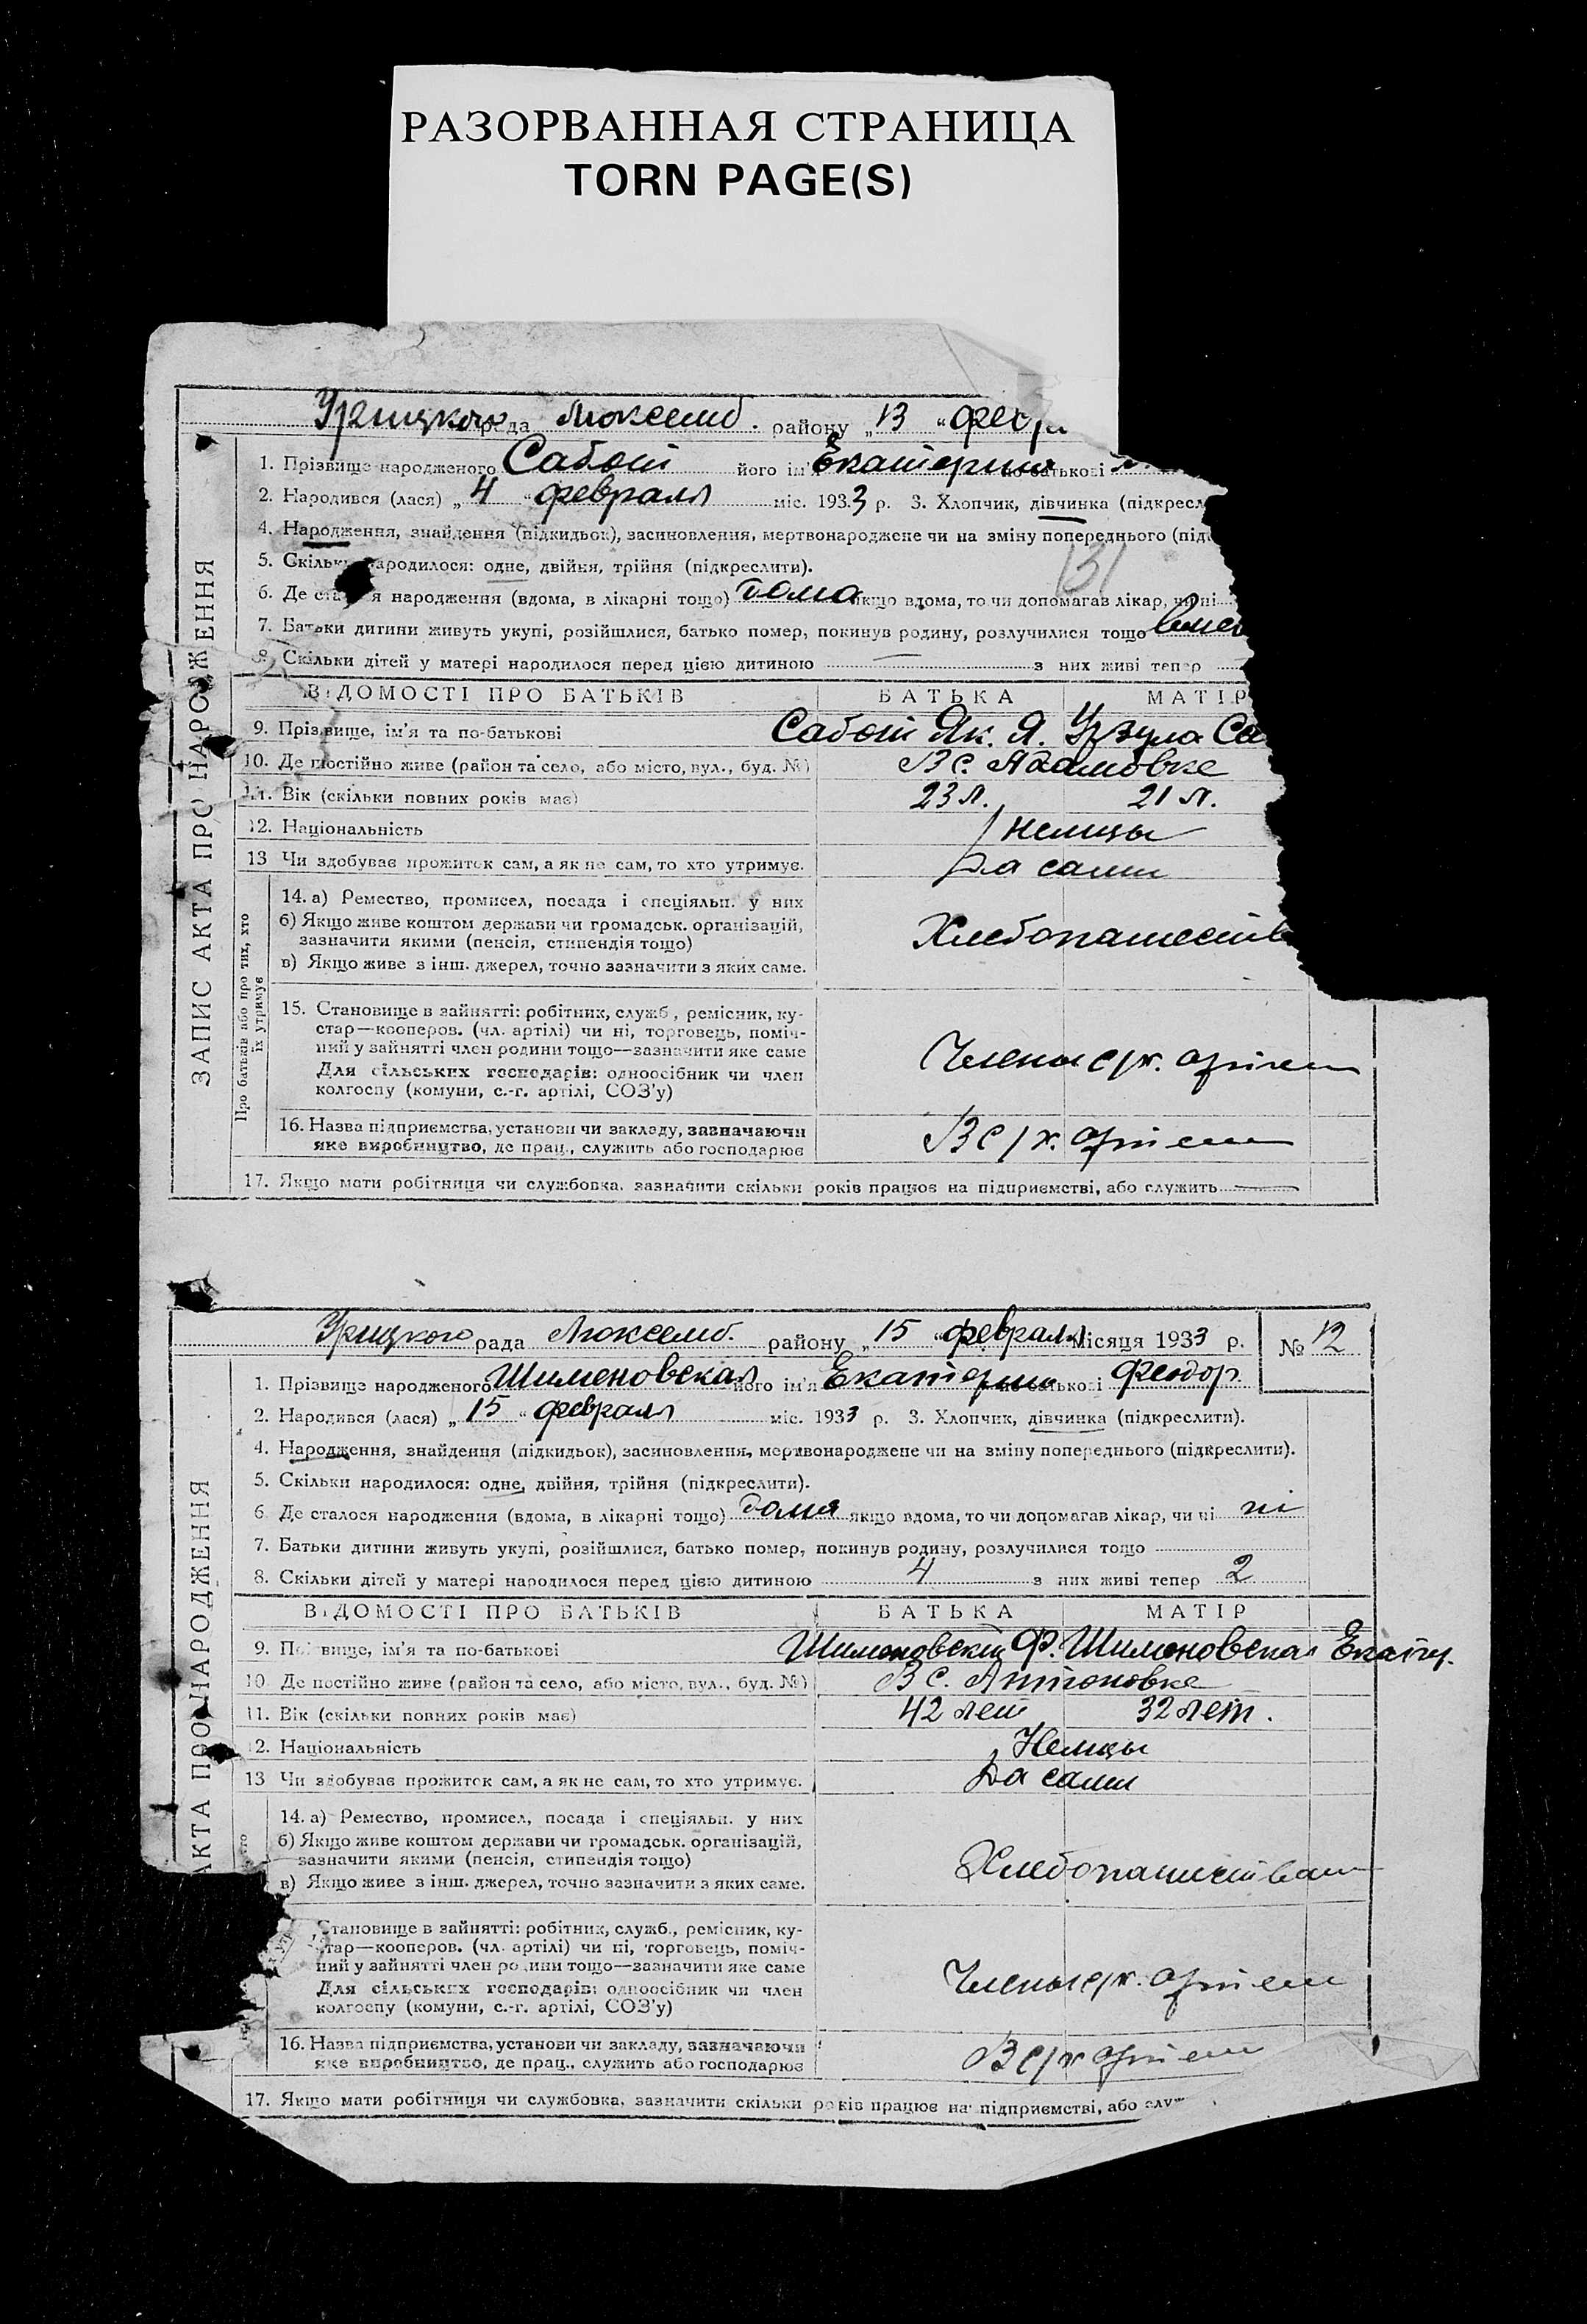 РАЗОРВАННАЯ СТРАНИЦА
TORN PAGE(S)
Урицкого рада Люксемб. району „13 “ февр
1. Прізвище народженого Сабот його ім'я Екатерина по-батькові
2. Народився (лася) „ 4 “ февраля міс. 1933 р. 3. Хлопчик, дівчинка (підкресл
4. Народження, знайдення (підкидьок), засиновлення, мертвонароджене чи на зміну попереднього (під
131
5. Скільки народилося: одне, двійня, трійня (підкреслити).
6. Де сталося народження (вдома, в лікарні тощо) дома якщо вдома, то чи допомагав лікар, чи ні
7. Батьки дитини живуть укупі, розійшлися, батько помер, покинув родину, розлучилися тощо вмес
8. Скільки дітей у матері народилося перед цією дитиною — з них живі тепер
ЗАПИС АКТА ПРО НАРОДЖЕННЯ
ВІДОМОСТІ ПРО БАТЬКІВ БАТЬКА МАТІР
9. Прізвище, ім'я та по-батькові Сабот Як. Я. Урзула Са
10. Де постійно живе (район та село, або місто, вул., буд. №) В с. Адамовке
11. Вік (скільки повних років має) 23 л. 21 л.
12. Національність немцы
13 Чи здобуває прожиток сам, а як не сам, то хто утримує. Да сами
Про батьків або про тих, хто їх утримує
14. а) Ремество, промисел, посада і спеціяльн. у них
б) Якщо живе коштом держави чи громадськ. організацій,
зазначити якими (пенсія, стипендія тощо) Хлебопашеств
в) Якщо живе з інш. джерел, точно зазначити з яких саме.
15. Становище в зайнятті: робітник, служб., ремісник, ку-
стар—кооперов. (чл. артілі) чи ні, торговець, поміч-
ний у зайнятті член родини тощо—зазначити яке саме
Члены с/х. артели
Для сільських господарів: одноосібник чи член
колгоспу (комуни, с.-г. артілі, СОЗ'у)
16. Назва підприємства, установи чи закладу, зазначаючи
яке виробництво, де прац., служить або господарює В с/х. артели
17. Якщо мати робітниця чи службовка, зазначити скільки років працює на підприємстві, або служить —
Урицкого рада Люксемб. району „15 “ февраля місяця 1933 р. № 12
1. Прізвище народженого Шимоновская його ім'я Екатерин по-батькові Феодор.
2. Народився (лася) „ 15 “ февраля міс. 1933 р. 3. Хлопчик, дівчинка (підкреслити).
4. Народження, знайдення (підкидьок), засиновлення, мертвонароджене чи на зміну попереднього (підкреслити).
5. Скільки народилося: одне, двійня, трійня (підкреслити).
6 Де сталося народження (вдома, в лікарні тощо) дома якщо вдома, то чи допомагав лікар, чи ні ні
7. Батьки дитини живуть укупі, розійшлися, батько помер, покинув родину, розлучилися тощо
8. Скільки дітей у матері народилося перед цією дитиною 4 з них живі тепер 2
АКТА ПРО НАРОДЖЕННЯ
ВІДОМОСТІ ПРО БАТЬКІВ БАТЬКА МАТІР
9. Прізвище, ім'я та по-батькові Шимоновский Ф. Шимоновская Екатер.
10. Де постійно живе (район та село, або місто, вул., буд. №) В с. Антоновке
11. Вік (скільки повних років має) 42 лет 32 лет.
12. Національність Немцы
13 Чи здобуває прожиток сам, а як не сам, то хто утримує. Да сами
14. а) Ремество, промисел, посада і спеціяльн. у них
б) Якщо живе коштом держави чи громадськ. організацій,
зазначити якими (пенсія, стипендія тощо) Хлебопашеством
в) Якщо живе з інш. джерел, точно зазначити з яких саме.
Становище в зайнятті: робітник, служб., ремісник, ку-
стар—кооперов. (чл. артілі) чи ні, торговець, поміч-
ний у зайнятті член родини тощо—зазначити яке саме
Члены с/х. артели
Для сільських господарів: одноосібник чи член
колгоспу (комуни, с.-г. артілі, СОЗ'у)
16. Назва підприємства, установи чи закладу, зазначаючи
яке виробництво, де прац., служить або господарює В с/х артели
17. Якщо мати робітниця чи службовка, зазначити скільки років працює на підприємстві, або служ